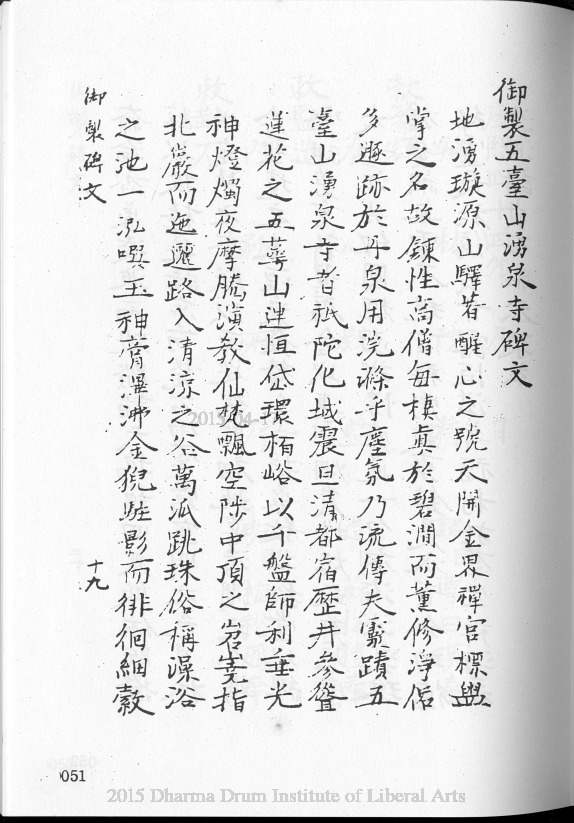 御製五臺山湧泉寺碑文
地湧璇源山驛著醒心之號天開金界禪宮標盥
掌之名故鍊性高僧每棲真於碧澗而薰修淨侶
多遯跡於丹泉用浣滌乎塵氛乃流傳夫靈蹟五
臺山湧泉寺者祇陀化域震旦清都宿歷井參聳
蓮花之五蕚山連恒岱環栢峪以千盤師利垂光
神燈燭夜摩騰演教仙梵飄空陟中頂之岧嶤指
北巖而迤邐路入清涼之谷萬派跳珠俗稱澡浴
之池一泓噀玉神膏滭沸金猊駐影而徘徊細縠
御製碑文
十九
051
2015 Dharma Drum Institute of Liberal Arts